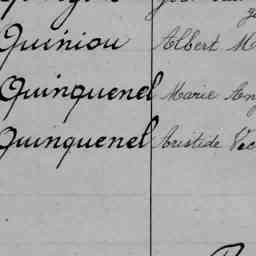 Quiniou Albert M
Quinquenel Marie Ang
Quinquenel Aristide Vic